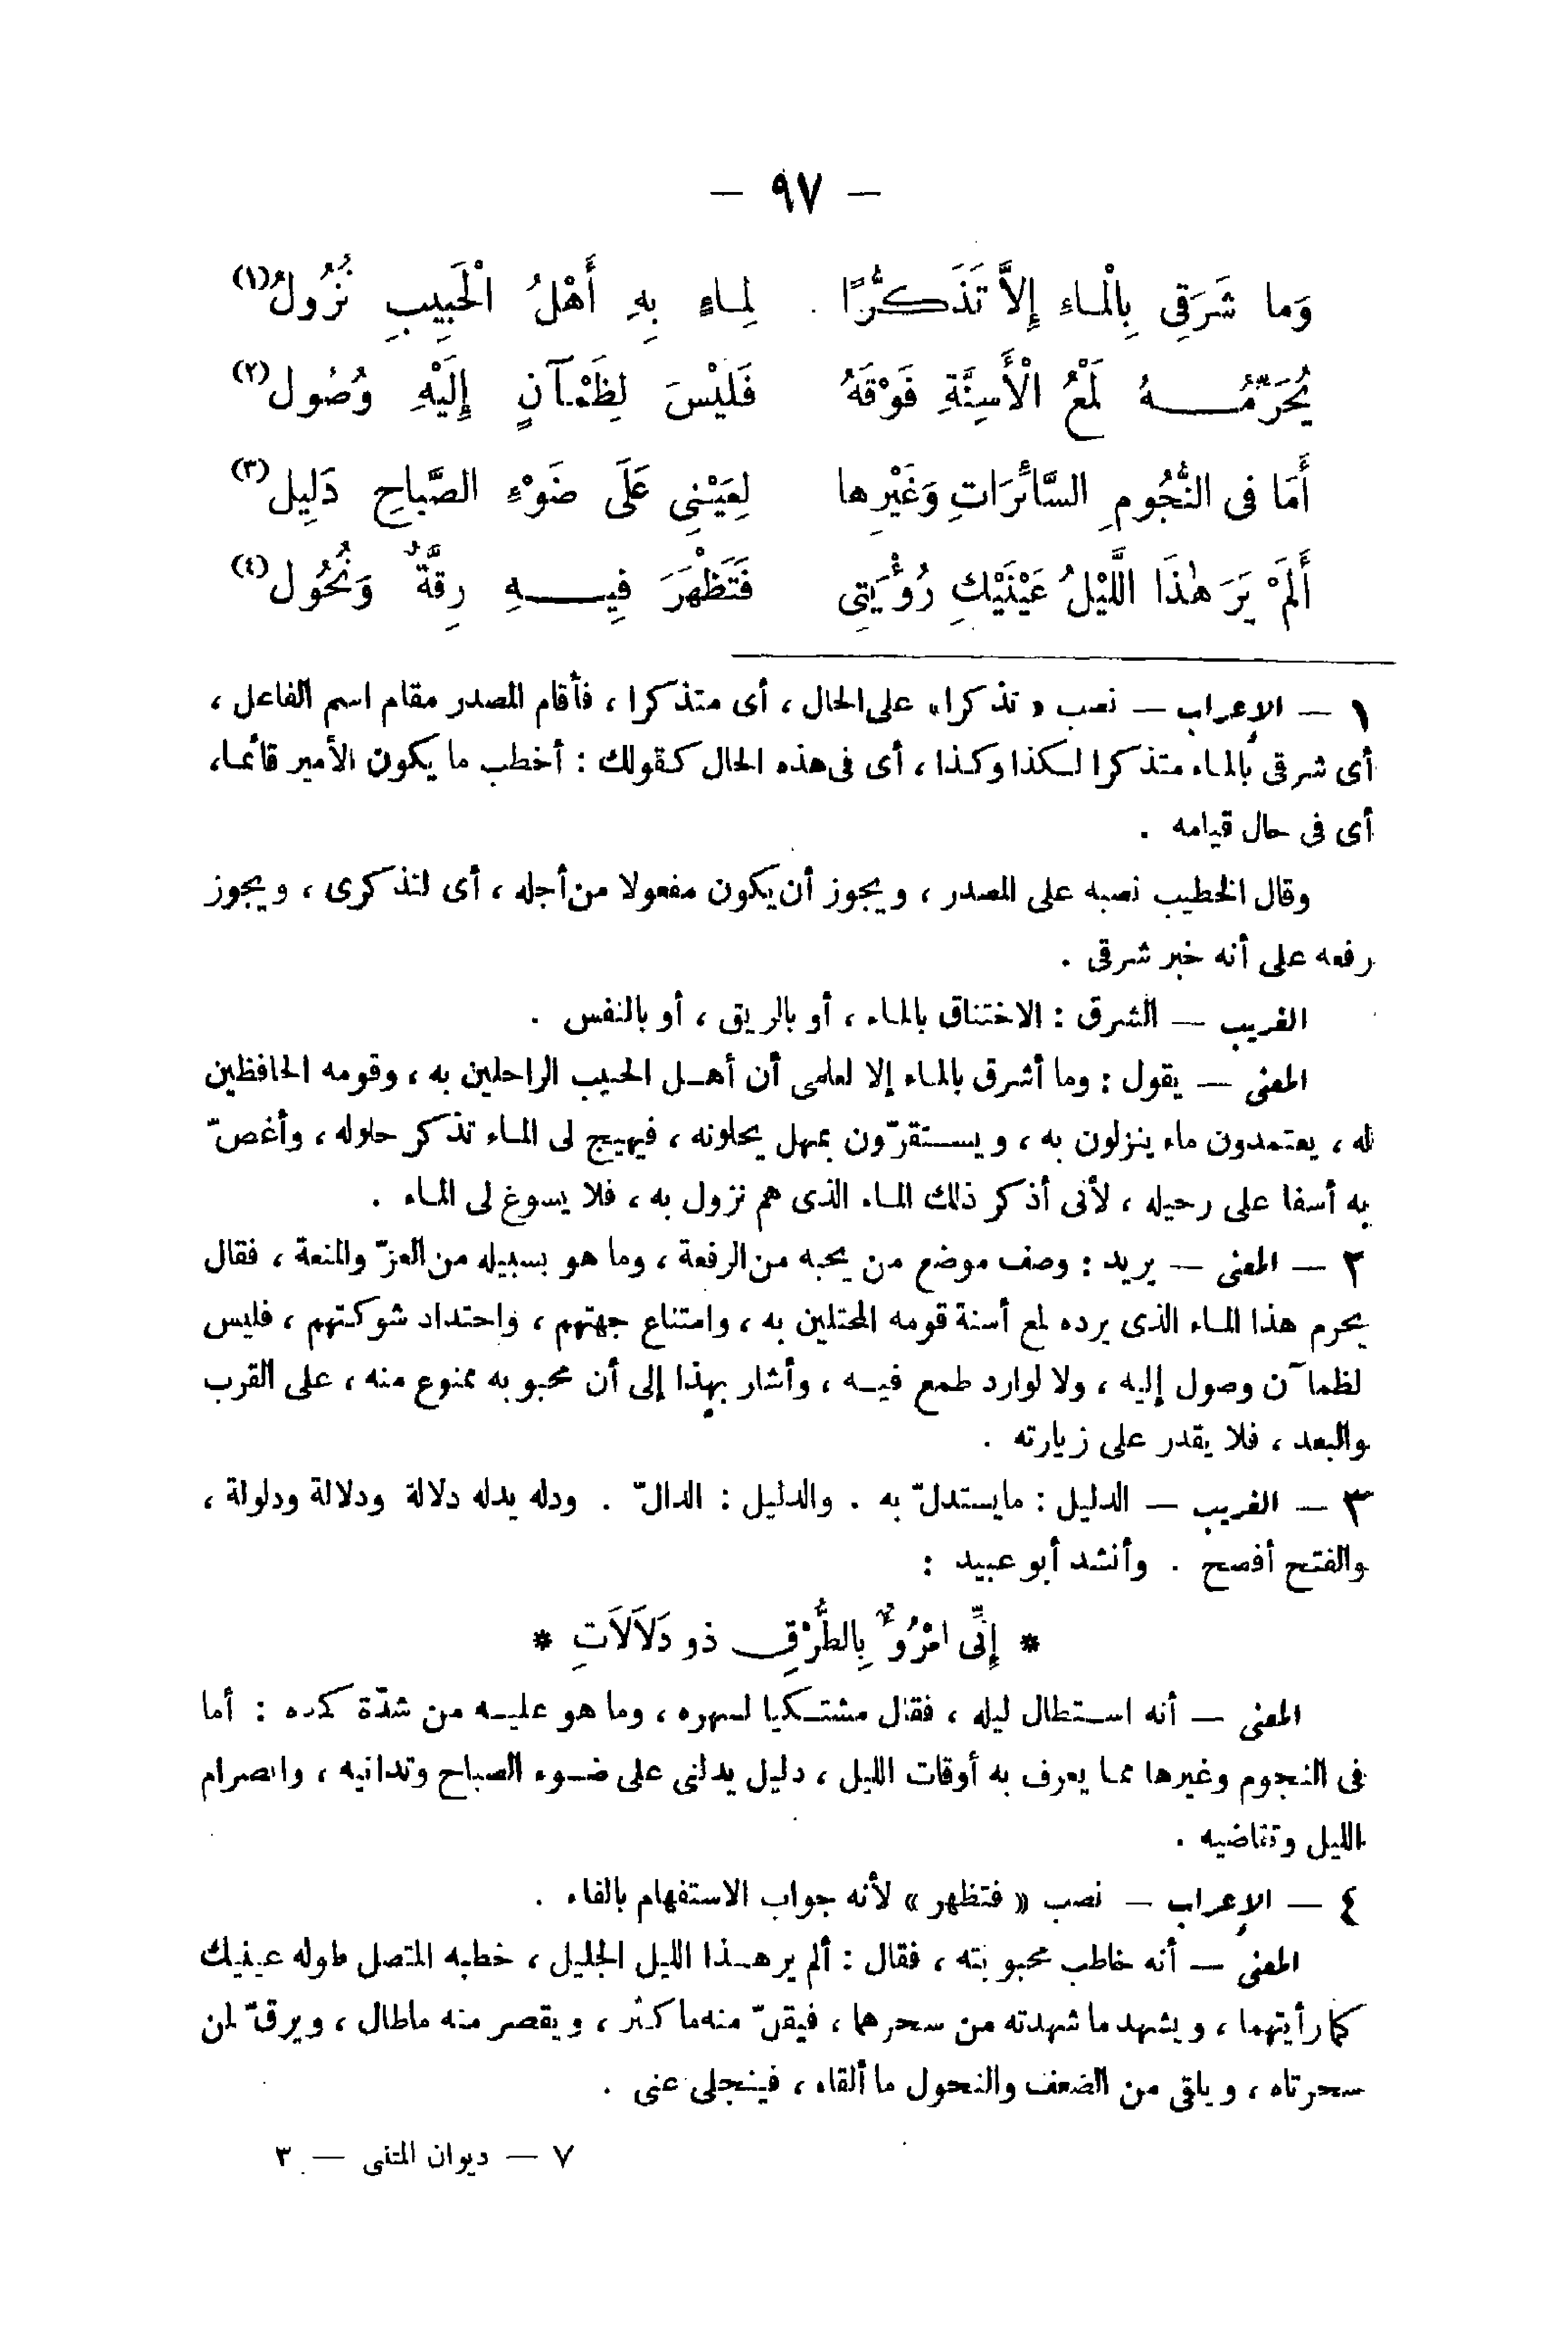 — ٩٧ —
وَما شَرَقِى بِالْمـاءِ إِلاَّ تَذَكُّرًا لِمـاءٍ بِهِ أَهْلُ الْحَبِيبِ نُزُولُ(١)
يُحَرِّمُـــهُ لَمْعُ الْأَسِنَّةِ فَوْقَهُ فَلَيْسَ لِظَمْـآنٍ إِلَيْهِ وُصُول(٢)
أَمَا فى النُّجُومِ السَّائِرَاتِ وَغَيْرِها لِعَيْنِى عَلَى ضَوْءِ الصَّباحِ دَلِيل(٣)
أَلَمْ يَرَ هٰذَا اللَّيْلُ عَيْنَيْكِ رُؤْيَتِى فَتَظْهَرَ فِيـــهِ رِقَّةٌ وَنُحُول(٤)
١ — الإعراب — نصب « تذكرا» على الحال ، أى متذكرا ، فأقام المصدر مقام اسم الفاعل ،
أى شرقى بالمـاء متذكرا لـكذا وكذا ، أى فى هذه الحال كـقولك : أخطب ما يكون الأمير قائمـا،
أى فى حال قيامه .
وقال الخطيب نصبه على المصدر ، ويجوز أن يكون مفعولا من أجله ، أى لتذكرى ، ويجوز
رفعه على أنه خبر شرقى .
الغريب — الشرق : الاختناق بالمـاء ، أو بالريق ، أو بالنفس .
المعنى — يقول : وما أشرق بالمـاء إلا لعلمى أن أهـل الحبيب الراحلين به ، وقومه الحافظين
له ، يعتمدون ماء ينزلون به ، ويسـتقرّون بمنهل يحلونه ، فيهيج لى المـاء تذكر حلوله ، وأغصّ
به أسفا على رحيله ، لأنى أذكر ذلك المـاء الذى هم نزول به ، فلا يسوغ لى المـاء .
٢ — المعنى — يريد : وصف موضع من يحبه من الرفعة ، وما هو بسبيله من العزّ والمنعة ، فقال
يحرم هذا المـاء الذى يرده لمع أسنة قومه المحتلين به ، وامتناع جهتهم ، واحتداد شوكـتهم ، فليس
لظمآن وصول إليه ، ولا لوارد طمع فيـه ، وأشار بهذا إلى أن محبوبه ممنوع منه ، على القرب
والبعد ، فلا يقدر على زيارته .
٣ — الغريب — الدليل : مايستدلّ به . والدليل : الدالّ . ودله يدله دلالة ودلالة ودلولة ،
والفتح أفصح . وأنشد أبو عبيد :
* إِنِّى امْرُؤٌ بِالطُّرْقِ ذو دَلاَلاَتِ *
المعنى — أنه اسـتطال ليله ، فقال مشتـكيا لسهره ، وما هو عليـه من شدّة كمده : أما
فى النجوم وغيرها ممـا يعرف به أوقات الليل ، دليل يدلنى على ضـوء الصباح وتدانيه ، وانصرام
الليل وتقاضيه .
٤ — الإعراب — نصب « فتظهر » لأنه جواب الاستفهام بالفاء .
المعنى — أنه خاطب محبوبته ، فقال : ألم ير هـذا الليل الجليل ، خطبه المتصل طوله عينيك
كما رأيتهما ، ويشهد ما شهدته من سحرهما ، فيقلّ منه ما كثر ، ويقصر منه ماطال ، ويرقّ لمن
سحرتاه ، ويلقى من الضعف والنحول ما ألقاه ، فينجلى عنى .
٧ — ديوان المتنبى — ٣